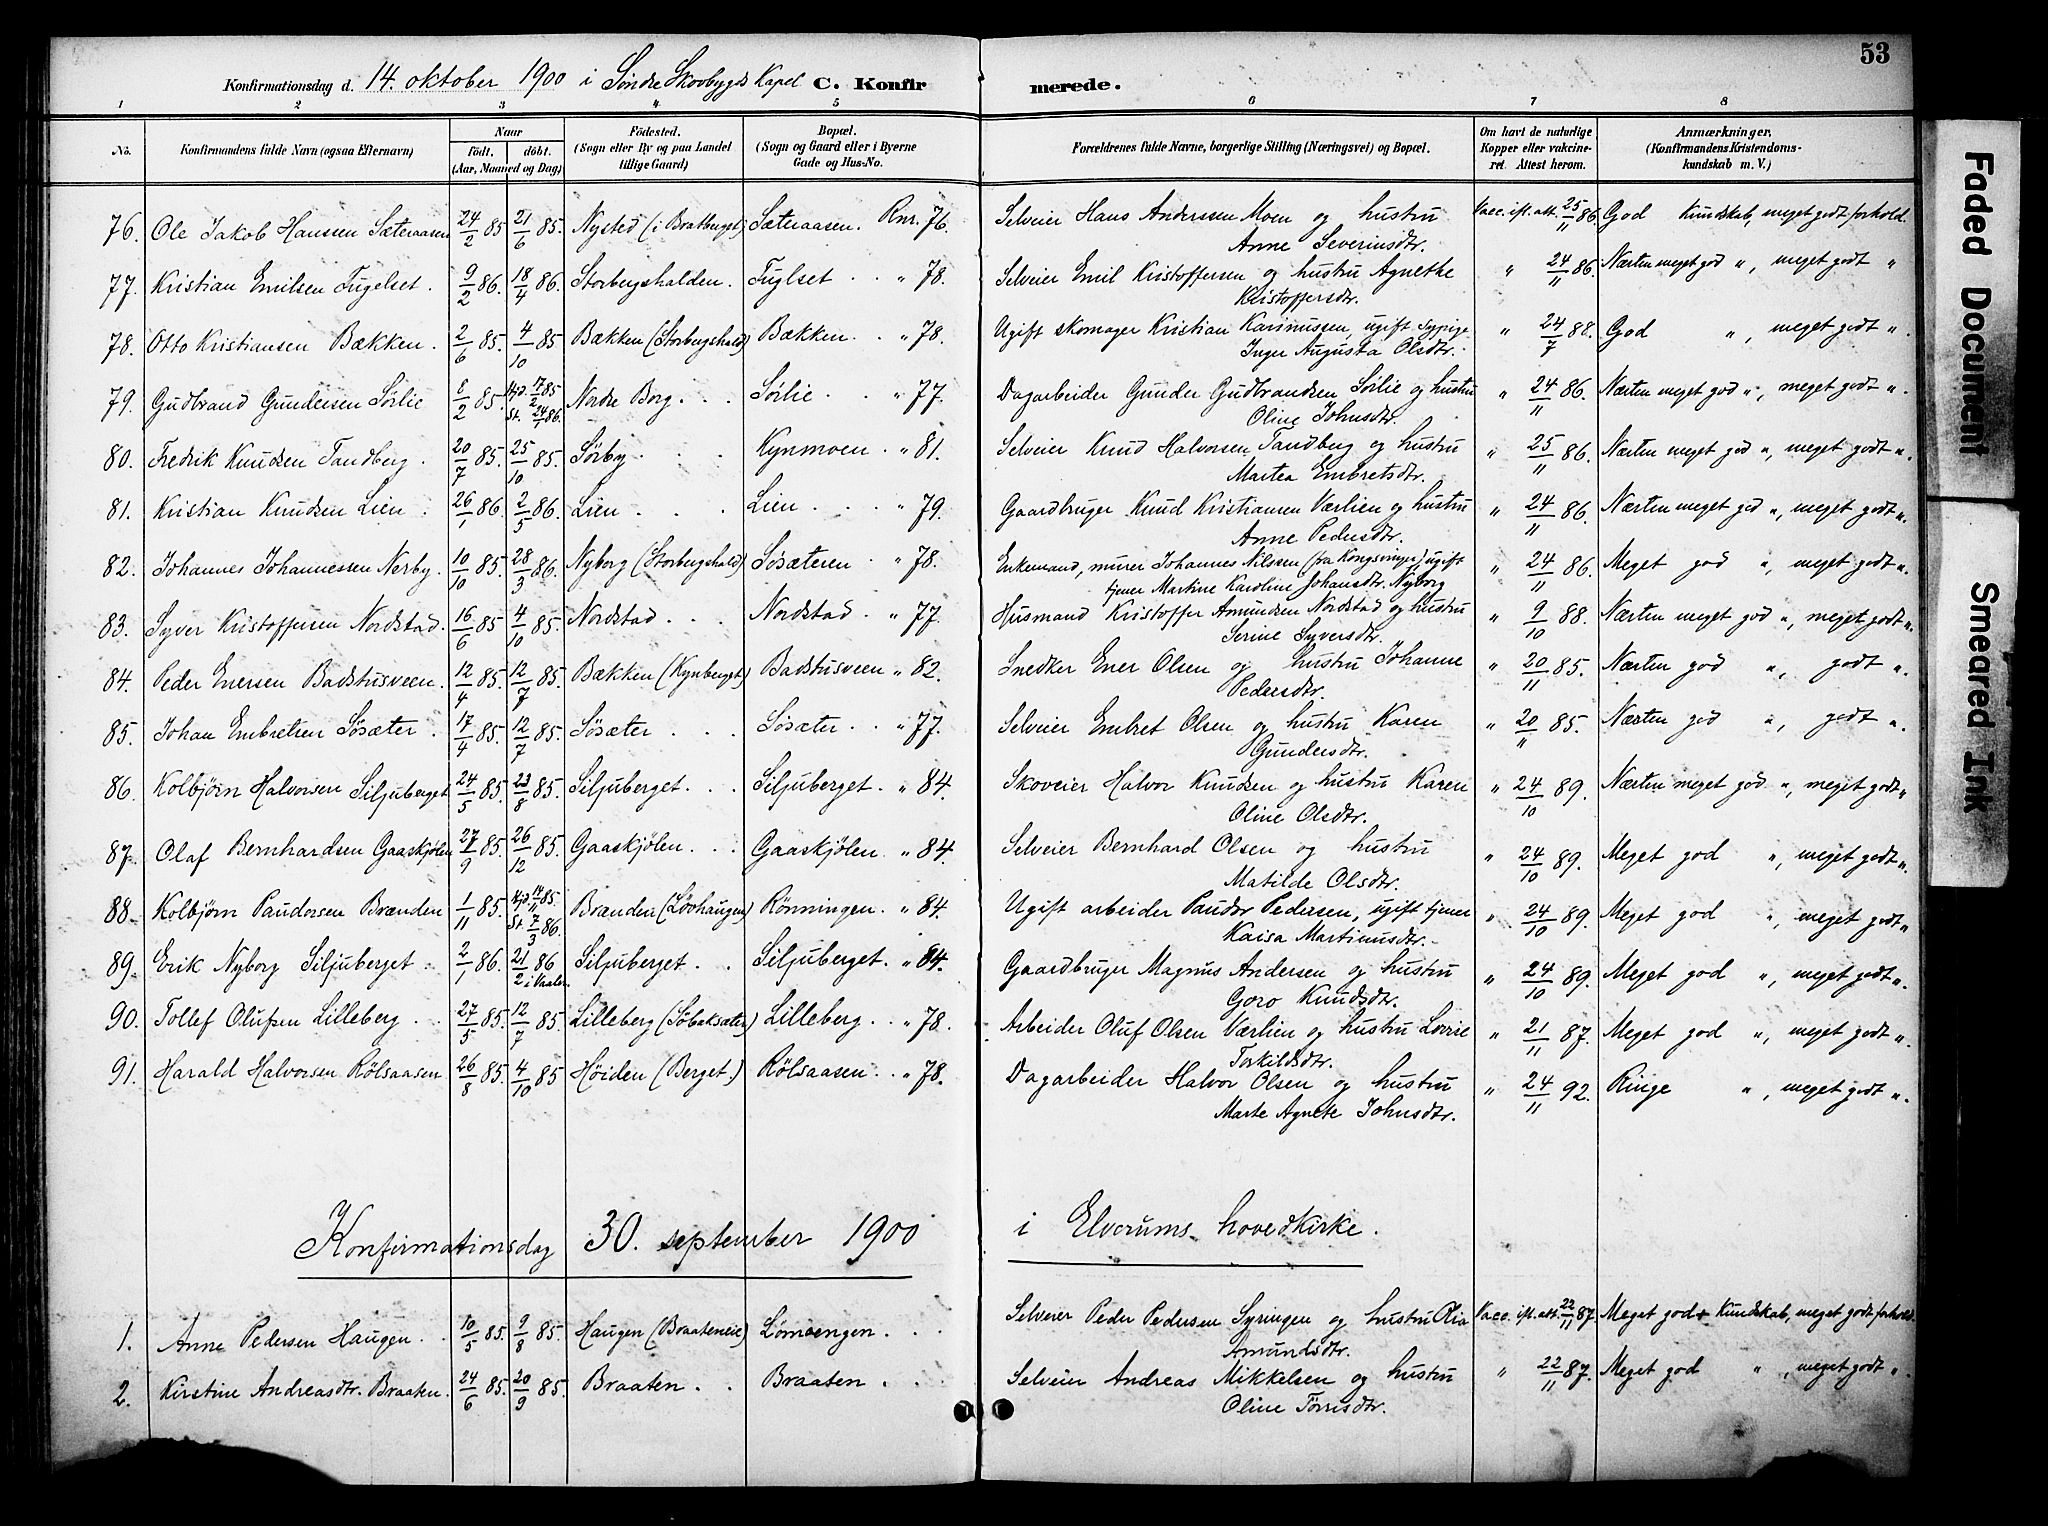 53
Konfirmationsdag d. 14. oktober 1900 i Søndre Skovbygds Kapel C. Konfirmerede.
1 2 3 4 5 6 7 8
No. Konfirmandens fulde Navn (ogsaa Efternavn) Naar födt. döbt. (Aar, Maaned og Dag) Födested. (Sogn eller By og paa Landet tillige Gaard) Bopæl. (Sogn og Gaard eller i Byerne Gade og Hus-No. Forældrenes fulde Navne, borgerlige Stilling (Næringsvei) og Bopæl. Om havt de naturlige Kopper eller vakcineret. Attest herom. Anmærkninger. (Konfirmandens Kristendomskundskab m. V.)
76. Ole Jakob Hanssen Sæteraasen 24/2 85. 21/6 85. Nysted (i Bratberget) Sæteraasen. Rnr. 76. Selveier Hans Anderssen Moen og hustru Anne Severinsdtr. Vacc. ifl. att. 25/11 86. God Kundskab, meget godt forhold.
77. Kristian Emilsen Fugelset. 9/2 86. 18/4 86. Storbergshalden. Fuglset . . " 78. Selveier Emil Kristoffersen og hustru Agnethe Kristoffersdtr. " 24/11 86. Næsten meget god ", meget godt "
78. Otto Kristiansen Bækken. 2/6 85. 4/10 85 Bækken (Storbergshald) Bækken . . " 78. Ugift skomager Kristian Karinussen, ugift sypige Inger Augusta Olsdtr. " 24/7 88. God ", meget godt ".
79. Gudbrand Gundersen Sørlie 8/2 85. Hjd. 17/2 85 St. 24/ 86. Nordre Borg . . . Sørlie . . " 77. Dagarbeider Gunder Gudbrandsen Sørlie og hustru Oline Johnsdtr. " 24/11 86. Næsten meget god ", meget godt ".
80. Fredrik Knudsen Tandberg. 20/7 85. 25/10 85. Sørby . . . Kynmoen . " 81. Selveier Knud Halvorsen Tandberg og hustru Martea Embretsdtr. " 25/11 86. Næsten meget god ", meget godt ".
81. Kristian Knudsen Lien. 26/1 86. 2/5 86. Lien . . . Lien . . . " 79. Gaardbruger Knud Kristiansen Værlien og hustru Anne Pedersdtr. " 24/11 86. Næsten meget god ", meget godt ".
82. Johannes Johannessen Nerby. 10/10 85. 28/3 86. Nyborg (Storbergshald) Søsæteren . " 78. Enkemand, murer Johannes Nilssen (fra Kongsvinger), ugift tjener Martine Karoline Johansdtr. Nyborg " 24/11 86. Meget god ", meget godt ".
83. Syver Kristoffersen Nordstad. 16/6 85 4/10 85. Nordstad . . . Nordstad . " 77. Husmand Kristoffer Amundsen Nordstad og hustru Serine Syversdtr. " 9/10 88. Næsten meget god ", meget godt ".
84. Peder Enersen Badstusveen. 12/4 85. 12/7 85. Bækken (Kynberget) Badstusveen " 82. Snedker Ener Olsen og hustru Johanne Pedersdtr. " 20/11 85. Næsten god ", godt ".
85. Johan Embretsen Søsæter. 17/4 85. 12/7 85. Søsæter . . . Søsæter . . " 77. Selveier Embret Olsen og hustru Karen Gundersdtr. " 20/11 85. Næsten god ", godt ".
86. Kolbjørn Halvorsen Siljuberget 24/5 85. 23/8 85. Siljuberget. . . Siljuberget. " 84. Skoveier Halvor Knudsen og hustru Karen Oline Olsdtr. " 24/10 89. Næsten meget god ", meget godt "
87. Olaf Bernhardsen Gaaskjølen 27/9 85. 26/12 85. Gaaskjølen. . . Gaaskjølen. " 84. Selveier Bernhard Olsen og hustru Matilde Olsdtr. " 24/10 89. Meget god ", meget godt ".
88. Kolbjørn Paudersen Brænden 1/11 85. Hjd. 14/11 85. St. 7/3 86. Brænden (Løvhaugen) Rønningen. " 84. Ugift arbeider Paudor Pedersen, ugift tjener Kaisa Martinusdtr. " 24/10 89. Meget god ", meget godt "
89. Erik Nyborg Siljuberget . 2/1 86. 21/2 86 i Vaaler. Siljuberget . . Siljuberget. " 84. Gaardbruger Magnus Andersen og hustru Goro Knudsdtr. " 24/10 89. Meget god ", meget godt ".
90. Tollef Olufsen Lilleberg . . 27/5 85. 12/7 85. Lilleberg (Søbaksæter) Lilleberg . . " 78. Arbeider Oluf Olsen Værlien og hustru Lovise Torkildsdtr. " 21/11 87. Meget god ", meget godt ".
91. Harald Halvorsen Rölsaasen 26/8 85. 4/10 85 Høiden (Berget.) Rölsaasen. . " 78. Dagarbeider Halvor Olsen og hustru Marte Agnete Johnsdtr. " 24/11 92. Ringe ", meget godt ".
Konfirmationsdag 30. september 1900 i Elverums hovedkirke.
1. Anne Pedersen Haugen . . 10/5 85. 9/8 85. Haugen (Braateneie) Lömoengen . . . Selveier Peder Pedersen Syringen og hustru Olia Amundsdtr. Vacc. ifl. att. 22/11 87. Meget god Kundskab, meget godt forhold.
2. Kirstine Andreasdtr. Braaten. 24/6 85. 20/9 85. Braaten . . Braaten . . . Selveier Andreas Mikkelsen og hustru Oline Tørrisdtr. " 22/11 87. Meget god ", meget godt ".
Faded Document
Smeared Ink